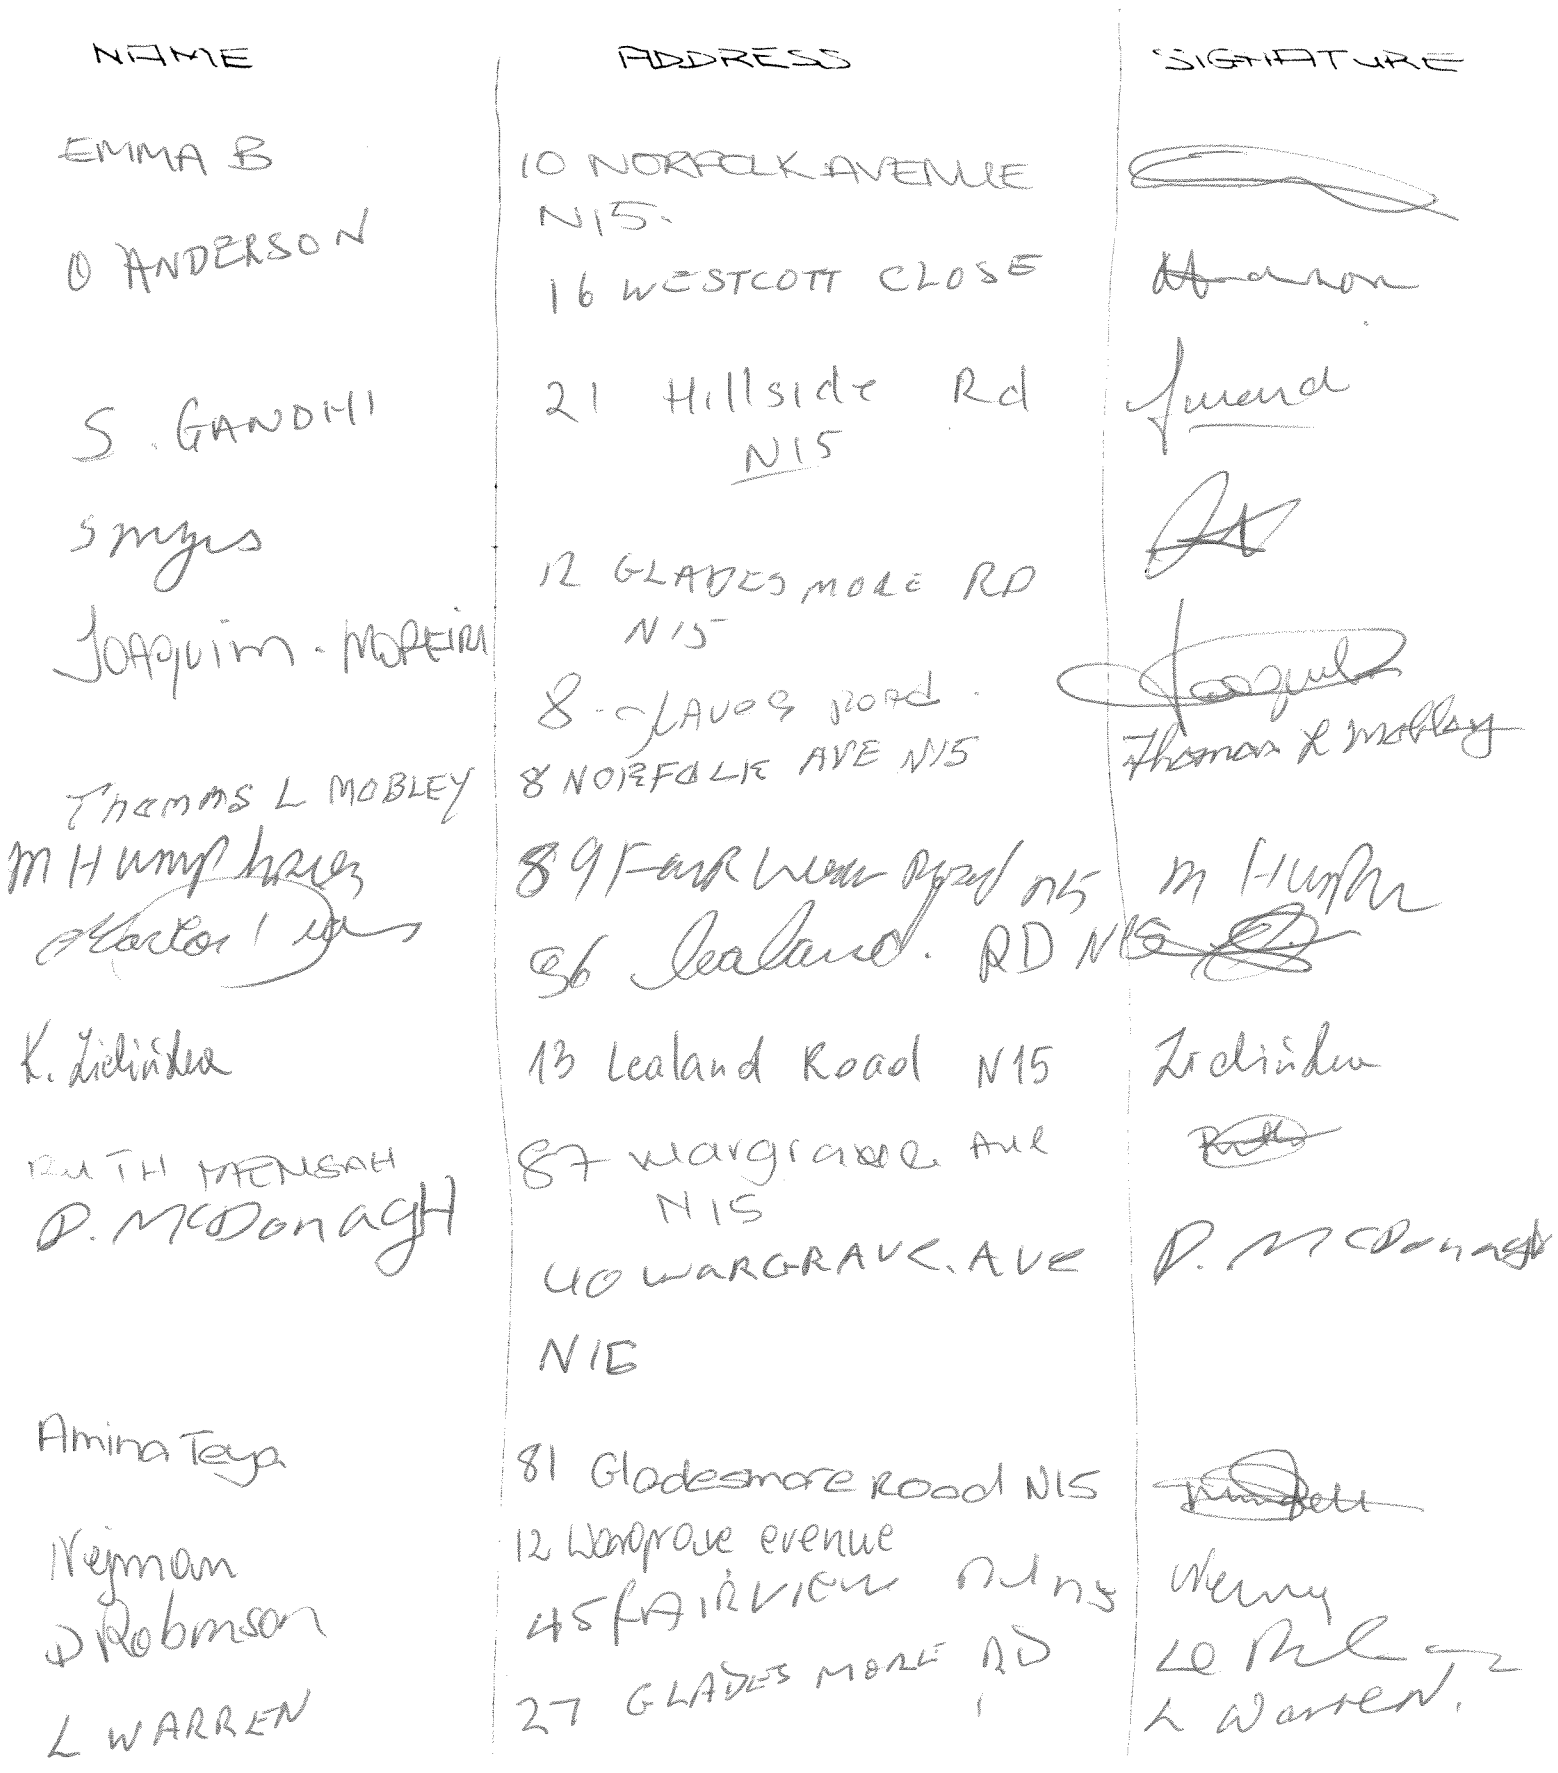 NAME ADDRESS SIGNATURE
EMMA B 10 NORFOLK AVENUE
N15.
O ANDERSON 16 WESTCOTT CLOSE
S. GANDHI 21 Hillside Rd
N15
S myers 12 GLADESMORE RD
N15
JOAQUIM - MOREIRA 8 ROAD.
THOMAS L MOBLEY 8 NORFOLK AVE N15 Thomas L Mobley
M Humphries 89 Road N15 M Humphr
96 Lealand. RD N15
K. 13 Lealand Road N15
RUTH MENSAH 87 Wargrave Ave
N15
P. McDonagH 40 WARGRAVE. AVE P. McDonagh
N15
Amina Teya 81 Gladesmore Road N15
Nejman 12 Wargrave evenue
D Robinson 45 FAIRVIEW Rd N15
L WARREN 27 GLADESMORE RD L WarreN.